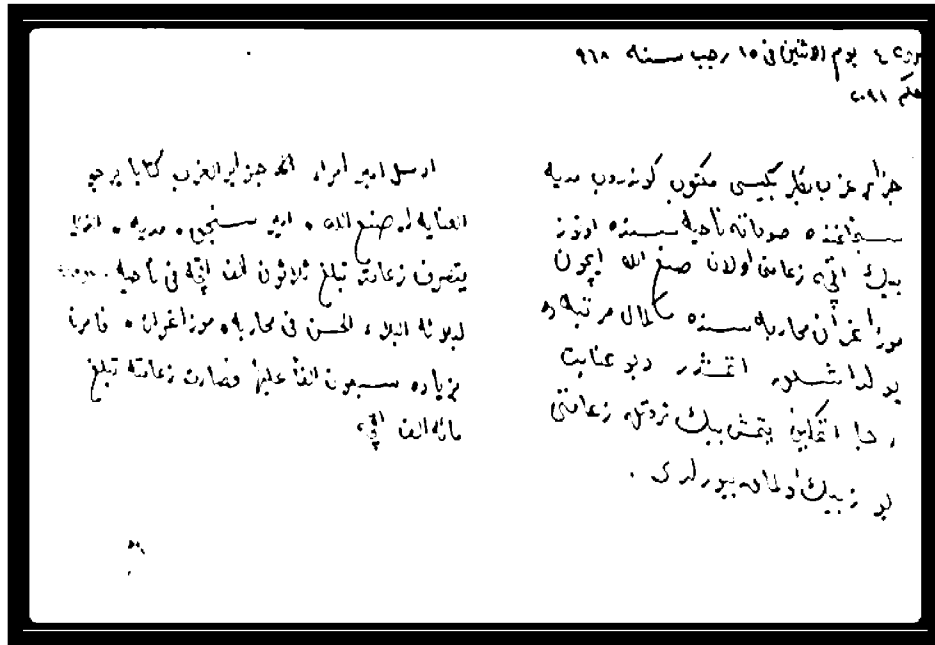 يوم الاثنين في ١٥ رجب سنه ٩٦٨
حكم ٢٠٩١
جزاير غرب بكلر بكيسى مكتوب كوندروب مديه
سنجاغنده ناحيه سنده اوتوز
بيك اقچه زعامتى اولان صنع الله ايچون
موزاغران محاربه سنده كمال مرتبه ده
يولداشلق اتمشدر ديو عنايت
رجا اتمكين يتمش بيك ترقى زعامتى
يوز بيك اولمق بيورلدى .
ارسل امير امراء جزاير الغرب كتابا يرجو
العنايه لـ صنع الله ، امير سنجق ، مديه ،
يتصرف زعامته تبلغ ثلاثون الف اقچه فى ناحية
لبلائه البلاء الحسن فى محاربه موزاغران ، فامرنا
بزياده سبعون الفا عليها فصارت زعامته تبلغ
مائه الف اقچه